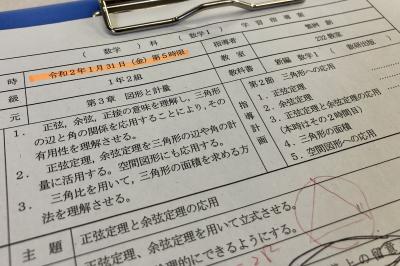 ( 数学 ) 科 ( 数学Ⅰ ) 学習指導案
時 令和２年１月３１日（金）第５時限 指導者
級 １年２組 教室 232教室
元 第３章 図形と計量 教科書 新編 数学Ⅰ（ 数研出版 ）
１． 正弦，余弦，正接の意味を理解し，三角形
の辺と角の関係を応用することにより，その
有用性を理解させる。
２． 正弦定理，余弦定理を三角形の辺や角の計
量に活用する。空間図形にも応用する。
３． 三角比を用いて，三角形の面積を求める方
法を理解させる。
指導計画
第２節 三角形への応用
１．正弦定理
２．余弦定理
３．正弦定理と余弦定理の応用
（本時はその２時間目）
４．三角形の面積
５．空間図形への応用
主題 正弦定理と余弦定理の応用
正弦定理、余弦定理を用いて立式させる。
理的にできるようにする。
上の留意